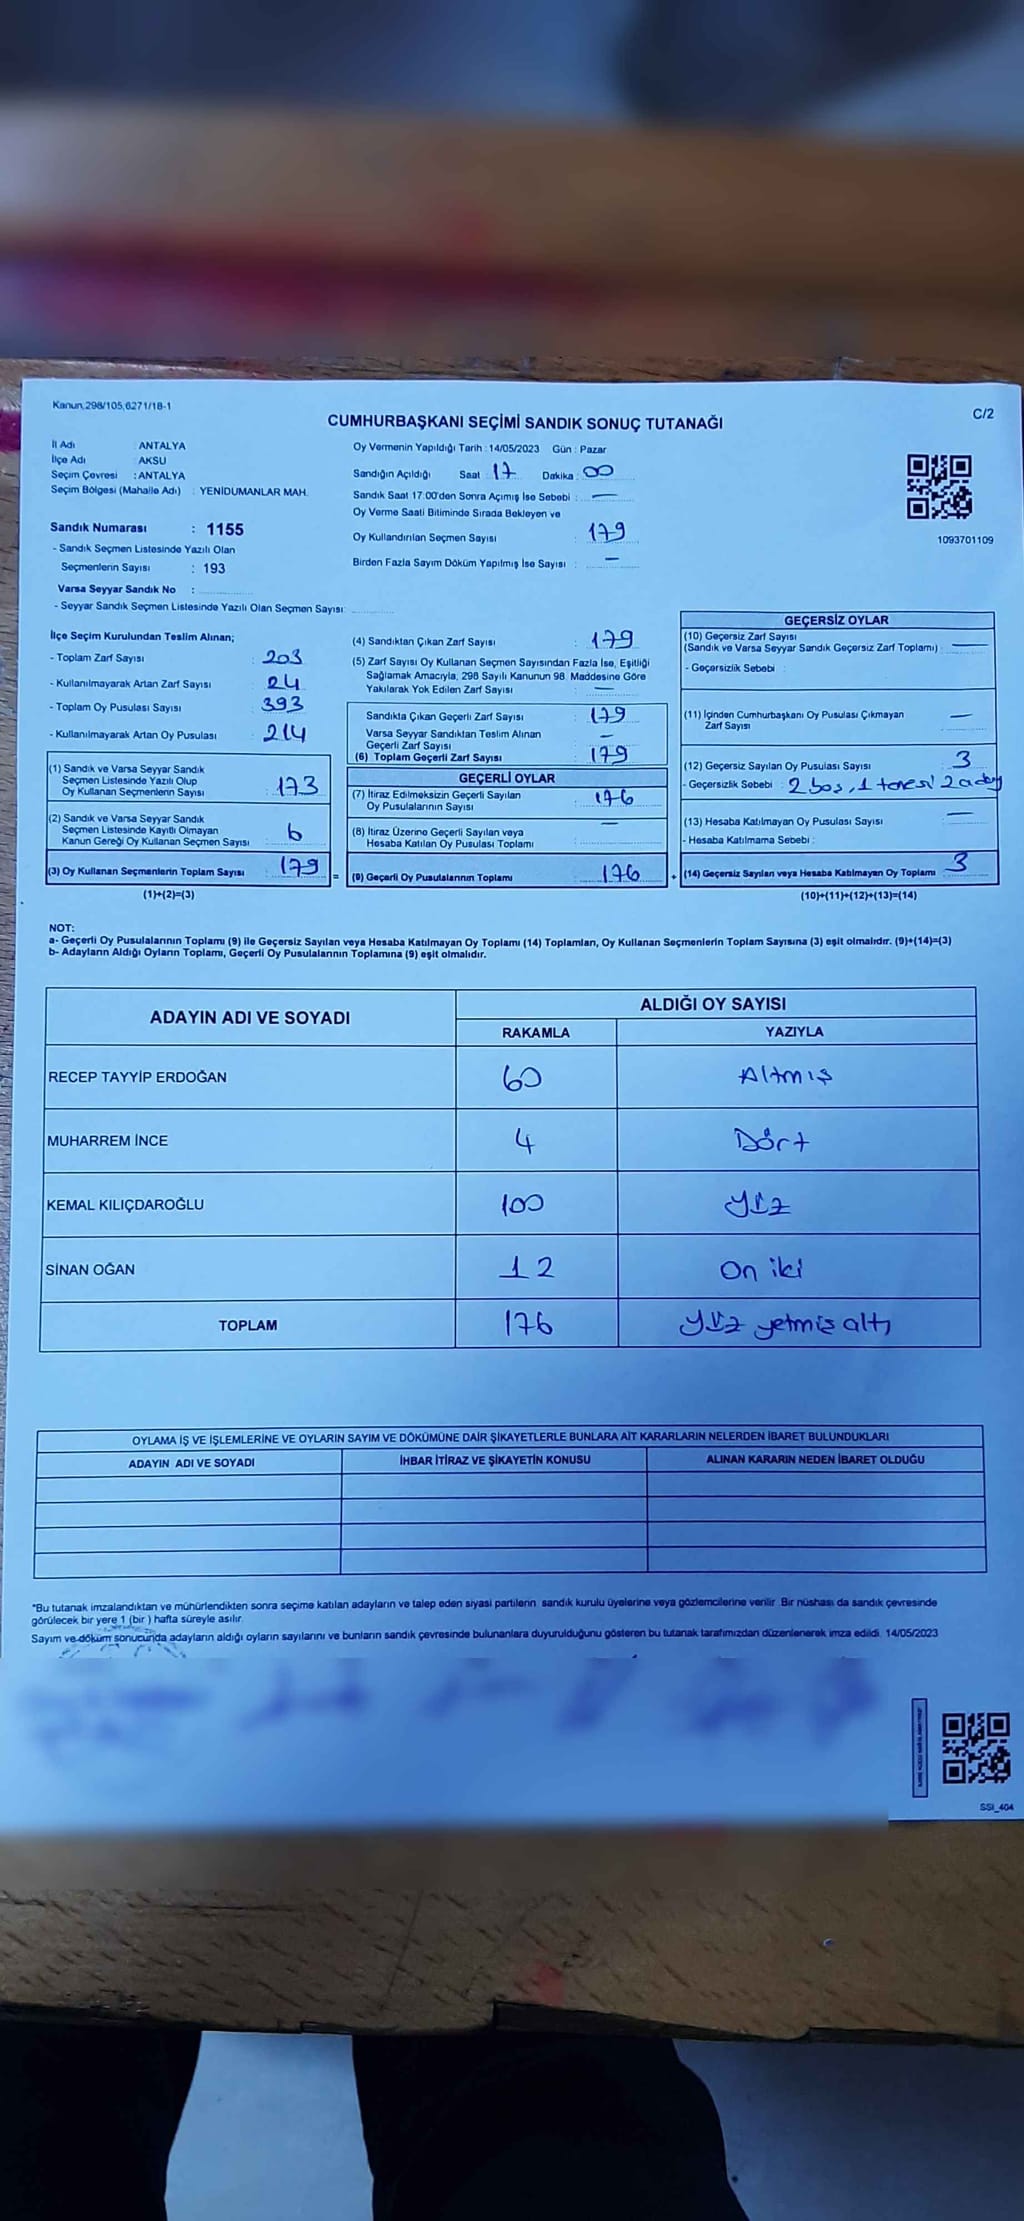 Kanun,298/105,6271/18-1
C/2
CUMHURBAŞKANI SEÇİMİ SANDIK SONUÇ TUTANAĞI
İl Adı : ANTALYA
İlçe Adı : AKSU
Seçim Çevresi : ANTALYA
Seçim Bölgesi (Mahalle Adı) : YENİDUMANLAR MAH.
Sandık Numarası : 1155
- Sandık Seçmen Listesinde Yazılı Olan
Seçmenlerin Sayısı : 193
Varsa Seyyar Sandık No :
- Seyyar Sandık Seçmen Listesinde Yazılı Olan Seçmen Sayısı:
Oy Vermenin Yapıldığı Tarih : 14/05/2023 Gün : Pazar
Sandığın Açıldığı Saat : 17 Dakika : 00
Sandık Saat 17:00'den Sonra Açımış İse Sebebi : —
Oy Verme Saati Bitiminde Sırada Bekleyen ve
Oy Kullandırılan Seçmen Sayısı : 179
Birden Fazla Sayım Döküm Yapılmış İse Sayısı : —
1093701109
İlçe Seçim Kurulundan Teslim Alınan;
- Toplam Zarf Sayısı : 203
- Kullanılmayarak Artan Zarf Sayısı : 24
- Toplam Oy Pusulası Sayısı : 393
- Kullanılmayarak Artan Oy Pusulası : 214
(1) Sandık ve Varsa Seyyar Sandık
Seçmen Listesinde Yazılı Olup
Oy Kullanan Seçmenlerin Sayısı : 173
(2) Sandık ve Varsa Seyyar Sandık
Seçmen Listesinde Kayıtlı Olmayan
Kanun Gereği Oy Kullanan Seçmen Sayısı : 6
(3) Oy Kullanan Seçmenlerin Toplam Sayısı : 179 =
(1)+(2)=(3)
(4) Sandıktan Çıkan Zarf Sayısı : 179
(5) Zarf Sayısı Oy Kullanan Seçmen Sayısından Fazla İse, Eşitliği
Sağlamak Amacıyla, 298 Sayılı Kanunun 98. Maddesine Göre
Yakılarak Yok Edilen Zarf Sayısı : —
Sandıkta Çıkan Geçerli Zarf Sayısı : 179
Varsa Seyyar Sandıktan Teslim Alınan
Geçerli Zarf Sayısı : —
(6) Toplam Geçerli Zarf Sayısı : 179
GEÇERLİ OYLAR
(7) İtiraz Edilmeksizin Geçerli Sayılan
Oy Pusulalarının Sayısı : 176
(8) İtiraz Üzerine Geçerli Sayılan veya
Hesaba Katılan Oy Pusulası Toplamı : —
(9) Geçerli Oy Pusulalarının Toplamı : 176 +
GEÇERSİZ OYLAR
(10) Geçersiz Zarf Sayısı
(Sandık ve Varsa Seyyar Sandık Geçersiz Zarf Toplamı) : —
- Geçersizlik Sebebi :
(11) İçinden Cumhurbaşkanı Oy Pusulası Çıkmayan
Zarf Sayısı : —
(12) Geçersiz Sayılan Oy Pusulası Sayısı : 3
- Geçersizlik Sebebi : 2 boş, 1 tanesi 2 aday
(13) Hesaba Katılmayan Oy Pusulası Sayısı : —
- Hesaba Katılmama Sebebi :
(14) Geçersiz Sayılan veya Hesaba Katılmayan Oy Toplamı : 3
(10)+(11)+(12)+(13)=(14)
NOT:
a- Geçerli Oy Pusulalarının Toplamı (9) ile Geçersiz Sayılan veya Hesaba Katılmayan Oy Toplamı (14) Toplamları, Oy Kullanan Seçmenlerin Toplam Sayısına (3) eşit olmalıdır. (9)+(14)=(3)
b- Adayların Aldığı Oyların Toplamı, Geçerli Oy Pusulalarının Toplamına (9) eşit olmalıdır.
ADAYIN ADI VE SOYADI
ALDIĞI OY SAYISI
RAKAMLA YAZIYLA
RECEP TAYYİP ERDOĞAN 60 Altmış
MUHARREM İNCE 4 Dört
KEMAL KILIÇDAROĞLU 100 yüz
SİNAN OĞAN 12 On iki
TOPLAM 176 yüz yetmiş altı
OYLAMA İŞ VE İŞLEMLERİNE VE OYLARIN SAYIM VE DÖKÜMÜNE DAİR ŞİKAYETLERLE BUNLARA AİT KARARLARIN NELERDEN İBARET BULUNDUKLARI
ADAYIN ADI VE SOYADI İHBAR İTİRAZ VE ŞİKAYETİN KONUSU ALINAN KARARIN NEDEN İBARET OLDUĞU
"Bu tutanak imzalandıktan ve mühürlendikten sonra seçime katılan adayların ve talep eden siyasi partilerin sandık kurulu üyelerine veya gözlemcilerine verilir. Bir nüshası da sandık çevresinde
görülecek bir yere 1 (bir ) hafta süreyle asılır.
Sayım ve döküm sonucunda adayların aldığı oyların sayılarını ve bunların sandık çevresinde bulunanlara duyurulduğunu gösteren bu tutanak tarafımızdan düzenlenerek imza edildi. 14/05/2023
SSI_404